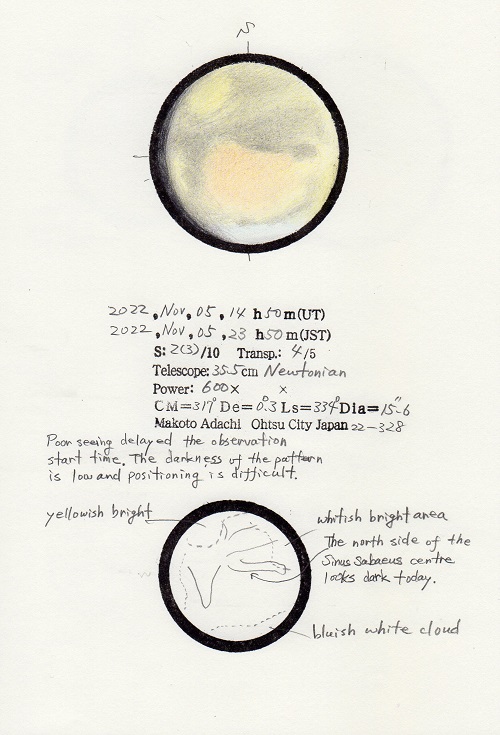 S
2022, Nov, 05, 14 h 50 m (UT)
2022, Nov, 05, 23 h 50 m (JST)
S: 2(3)/10 Transp.: 4/5
Telescope: 35.5cm Newtonian
Power: 600× ×
CM=317° De=0.°3 Ls=334° Dia=15."6
Makoto Adachi Ohtsu City Japan 22-328
Poor seeing delayed the observation
start time. The darkness of the pattern
is low and positioning is difficult.
yellowish bright
whitish bright area
The north side of the
Sinus Sabaeus centre
looks dark today.
bluish white cloud